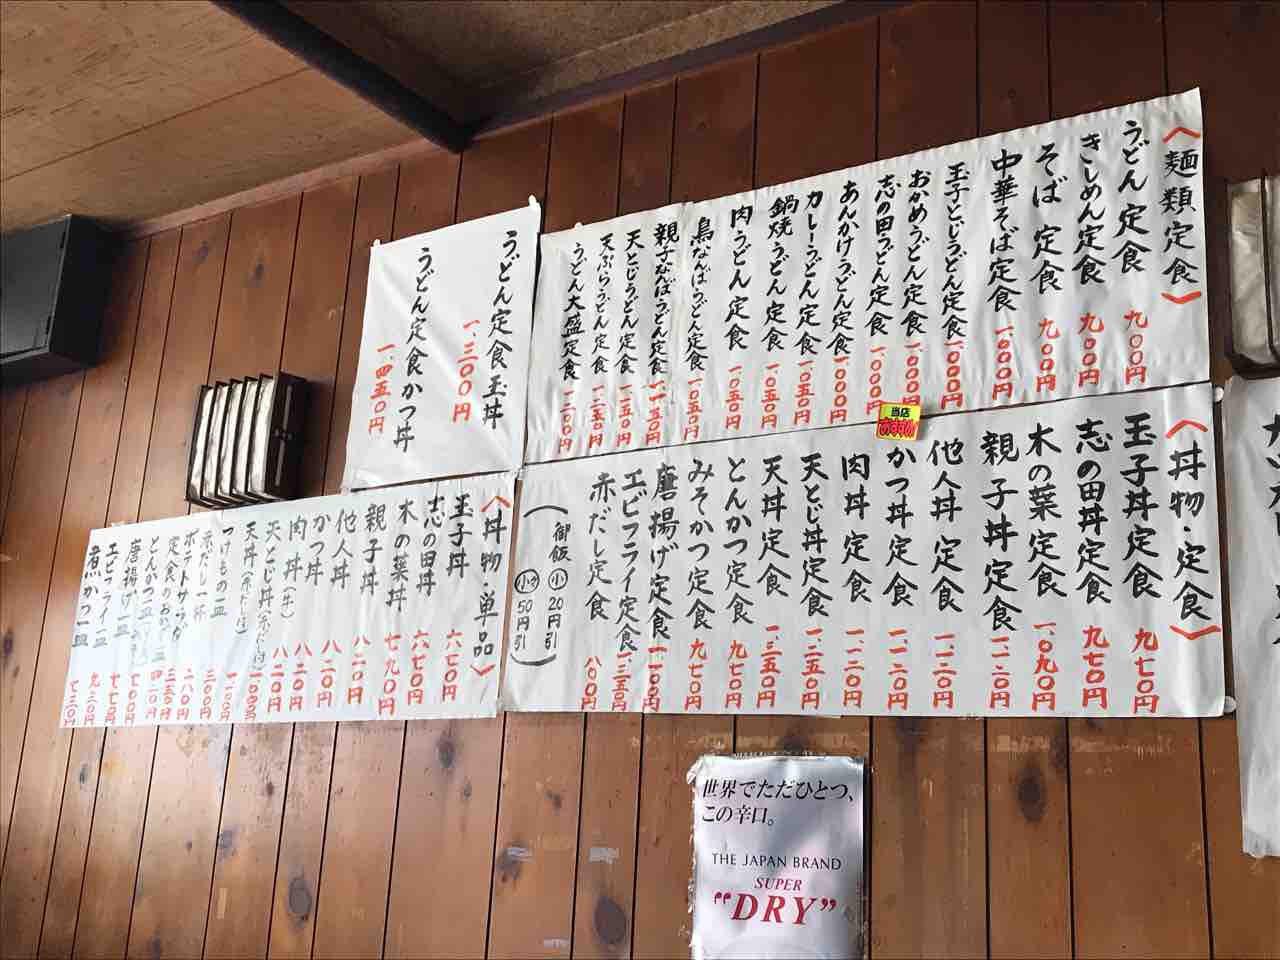 〈麺類定食〉
うどん定食 九〇〇円
きしめん定食 九〇〇円
そば定食 九〇〇円
中華そば定食 一、〇〇〇円
玉子とじうどん定食 一、〇〇〇円
おかめうどん定食 一、〇〇〇円
志の田うどん定食 一、〇〇〇円
あんかけうどん定食 一、〇〇〇円
カレーうどん定食 一、〇五〇円
鍋焼うどん定食 一、〇五〇円
肉うどん定食 一、〇五〇円
鳥なんばうどん定食 一、〇五〇円
親子なんばうどん定食 一、一五〇円
天とじうどん定食 一、二五〇円
天ぷらうどん定食 一、二五〇円
うどん大盛定食 一、二〇〇円
うどん定食玉丼 一、三〇〇円
うどん定食かつ丼 一、四五〇円
〈丼物・定食〉
玉子丼定食 九七〇円
志の田丼定食 九七〇円
木の葉定食 一、〇九〇円
親子丼定食 一、一二〇円
他人丼定食 一、一二〇円
当店
おすすめ!
かつ丼定食 一、一二〇円
肉丼定食 一、一二〇円
天とじ丼定食 一、三五〇円
天丼定食 一、三五〇円
とんかつ定食 九七〇円
みそかつ定食 九七〇円
唐揚げ定食 一、一〇〇円
エビフライ定食 一、三五〇円
赤だし定食 八〇〇円
(御飯 小 20円引
小々 50円引)
〈丼物・単品〉
玉子丼 六七〇円
志の田丼 六七〇円
木の葉丼 七九〇円
親子丼 八二〇円
他人丼 八二〇円
かつ丼 八二〇円
肉丼(牛) 八二〇円
天とじ丼(赤だし付)
天丼(赤だし付)
つけもの一皿
赤だし一杯 三〇〇円
ポテトサラダ 二八〇円
定食のおかず一皿 三五〇円
とんかつ一皿 四二〇円
唐揚げ一皿 七〇〇円
エビフライ一皿 七七〇円
煮かつ一皿 七三〇円
世界でただひとつ、
この辛口。
THE JAPAN BRAND
SUPER
"DRY"